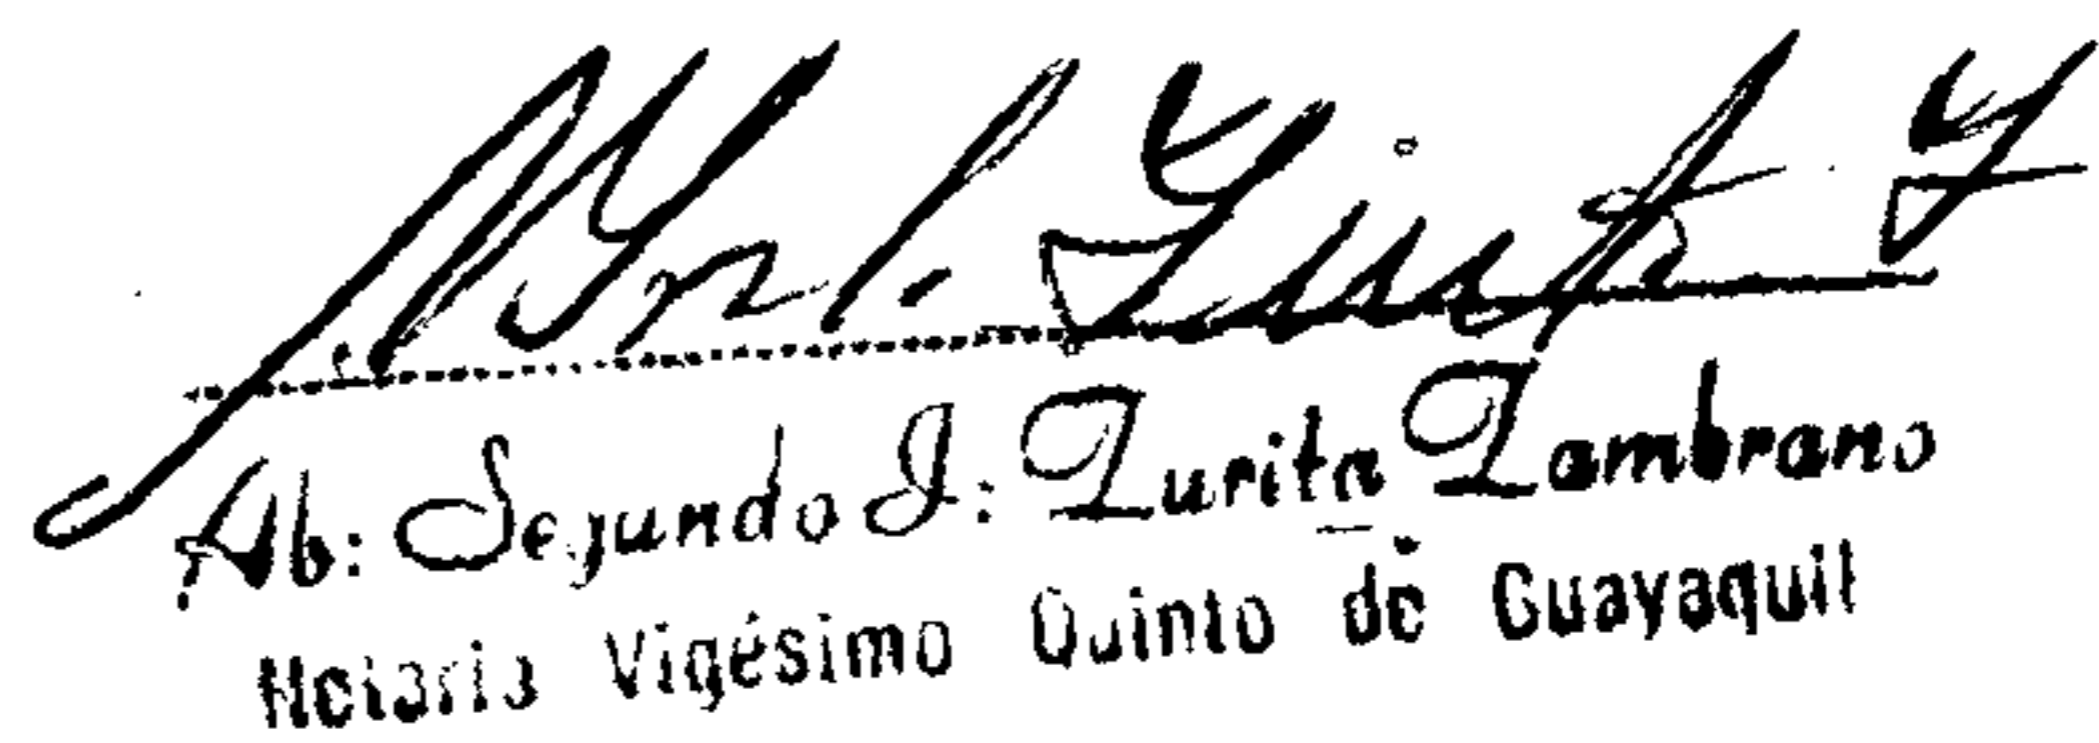 Ab: Segundo J: Zurita Zambrano
Notario Vigésimo Quinto de Guayaquil